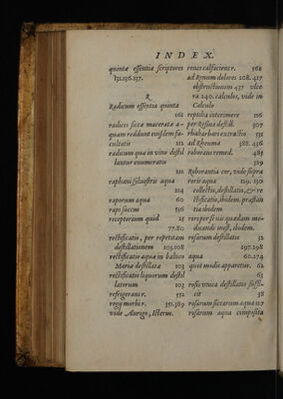 INDEX.
quintæ essentiæ scriptores
131.136.137.
R
Radicum essentia quinta
162
radices siccæ maceratæ a-
quam reddunt eiusdem fa-
cultatis 112
radicum quæ in vino destil
lantur enumeratio
112
raphani syluestris aqua
224
raporum aqua 60
rapi succus 596
receptorium quid 25
77.80
rectificatio, per repetitam
destillationem 103.108
rectificatio aquæ in balneo
Mariæ destillatæ 103
rectificatio liquorum destil
latorum 103
refrigerant r. 552
regij morbi r. 351.389
vide Aurigo, Icterus.
renes calfacienr. 362
ad Renum dolores 208.417
obstructionum 437 vlce-
ra 240. calculos, vide in
Calculo
reptilia interimere 116
per Resinā destill. 397
rhabarbari extractio 532
ad Rheuma 388. 416
roborans remed. 485
529
Roborantia cer, vide supra
roris aqua 129. 130
collectio, destillatio, & re
ctificatio, ibidem. præstan
tia ibidem
rosarum destillatio 32
197.198
aqua 60.174
quot modis apparetur. 62
63
rosis vnica destillatio suffi-
cit 38
rosarum siccarum aqua 117
rosarum aqua composita